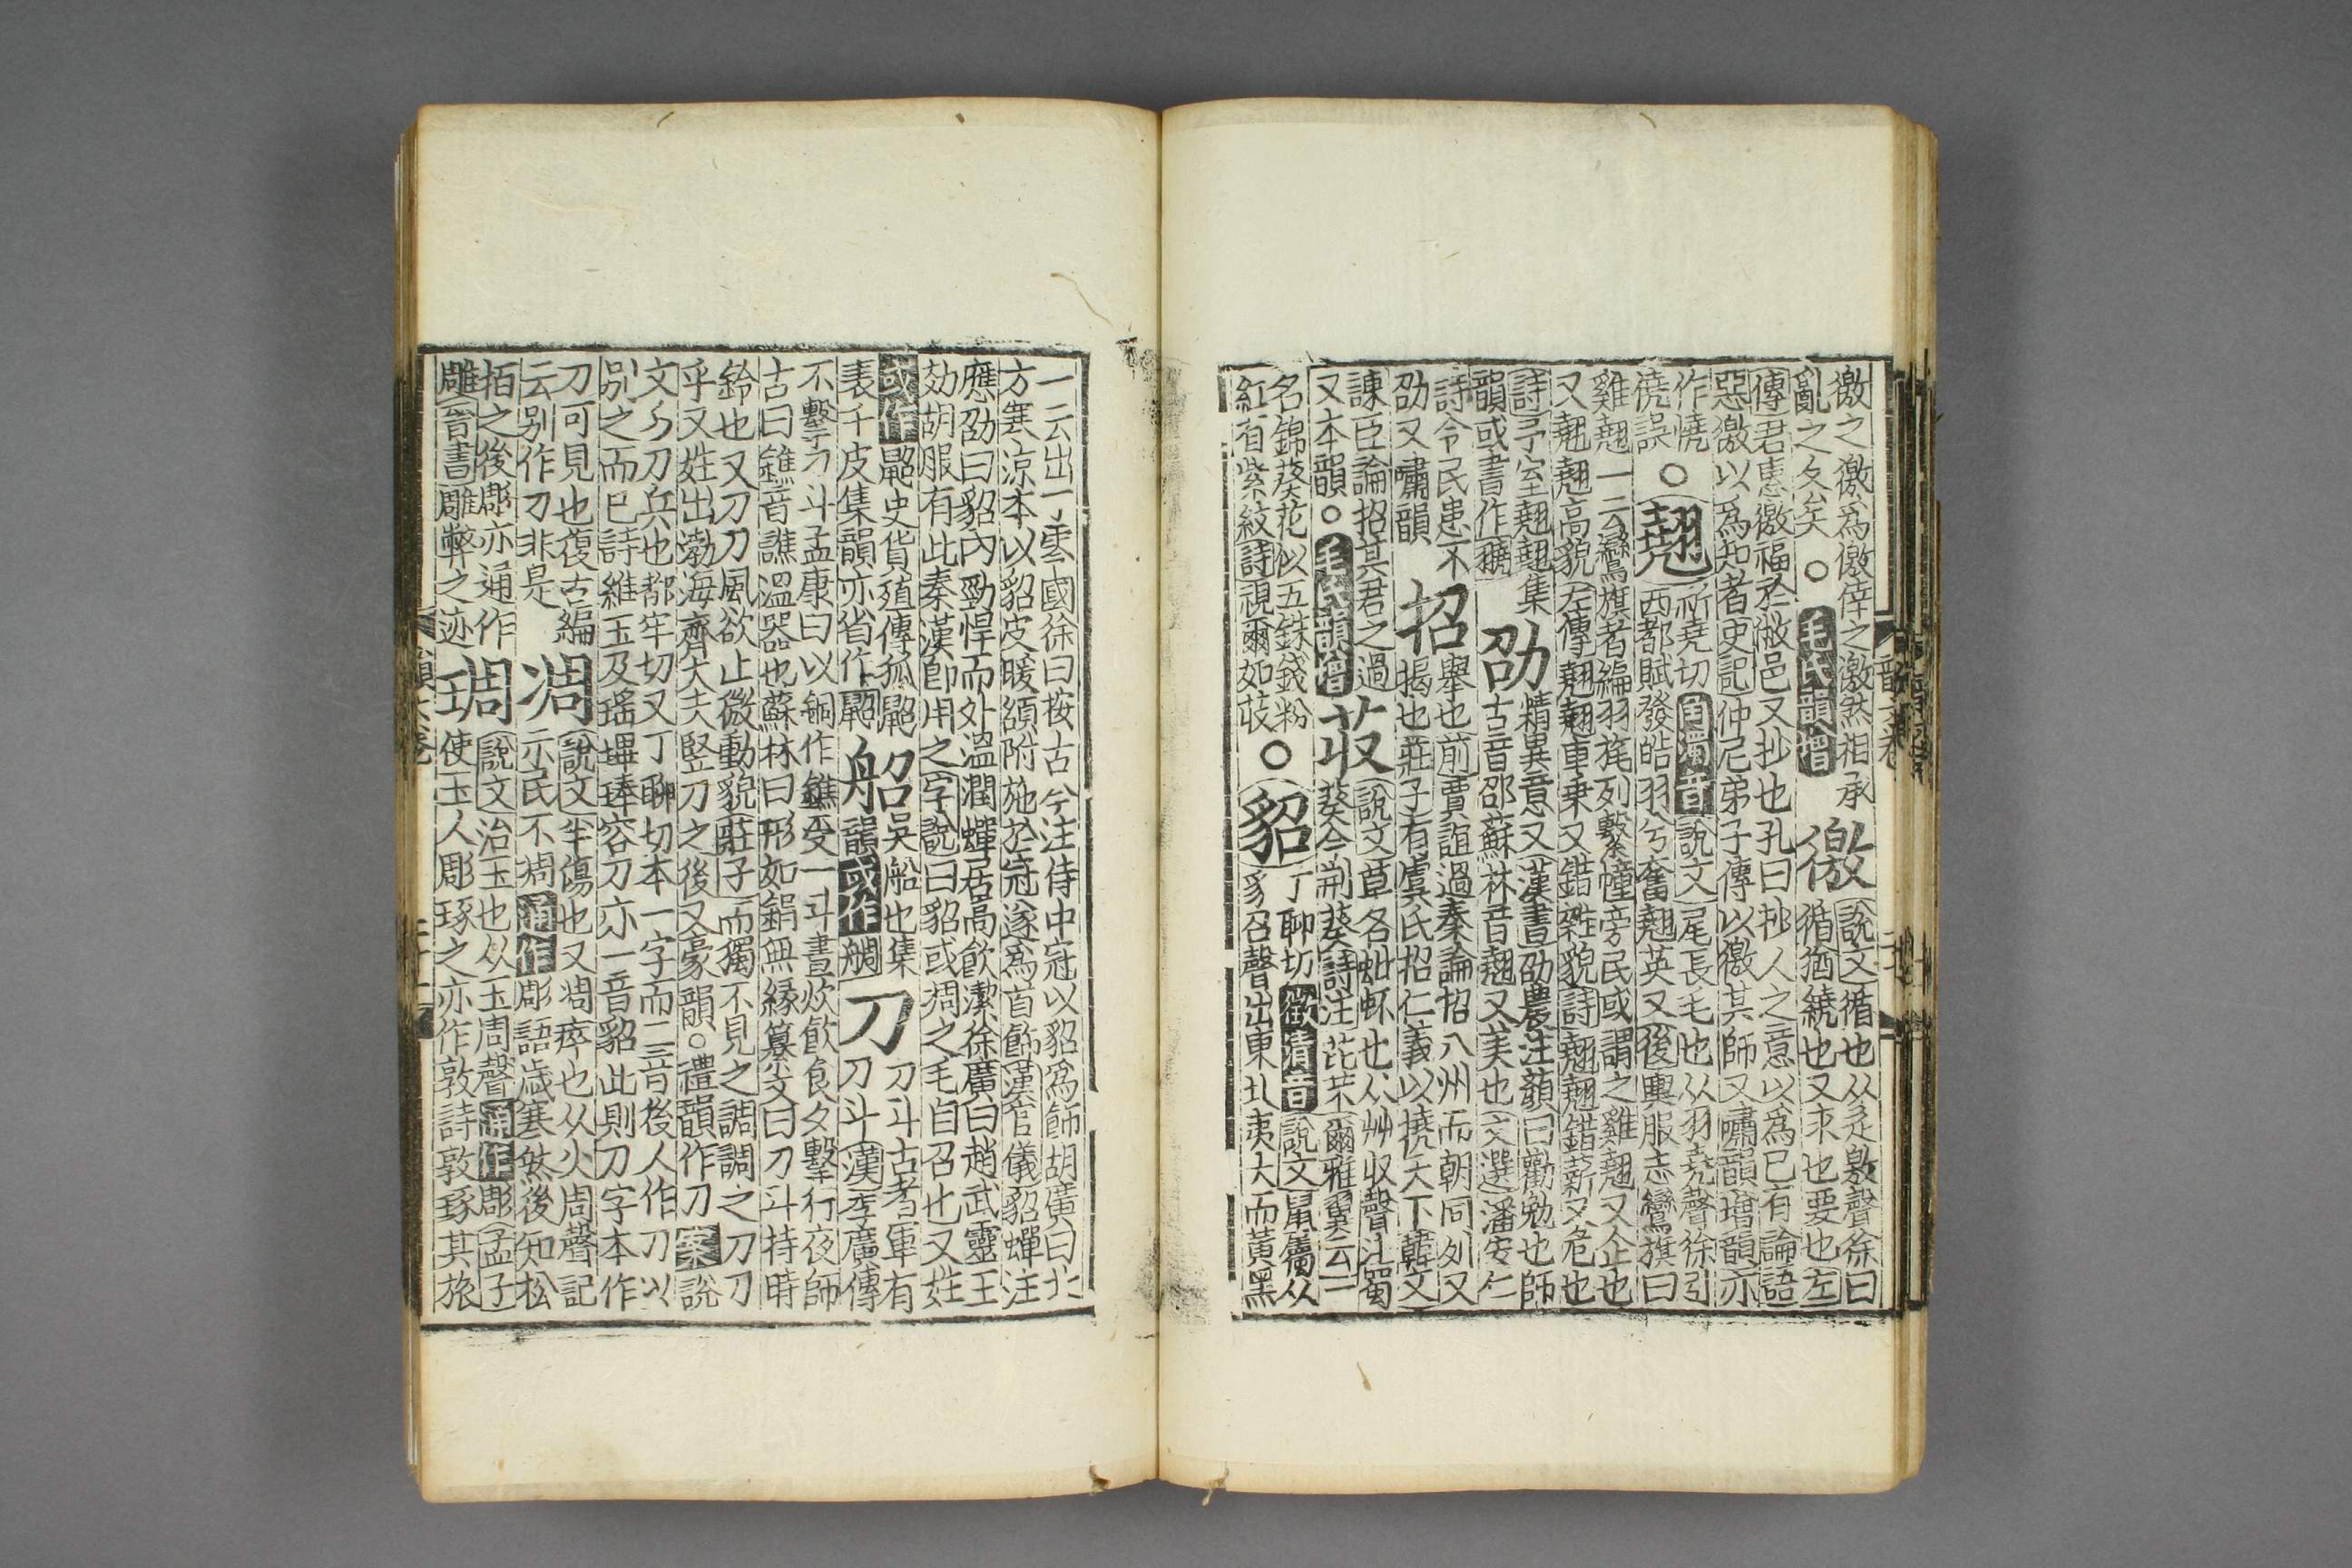 徼之徼爲徼倖之激然相承
亂之夂矣○毛氏韻增
徼
說文循也从辵敫聲徐曰
循猶繞也又求也要也左
傳君惠徼福於敝邑又抄也孔曰抄人之意以爲已有論語
惡徼以爲知者史記仲尼弟子傳以徼其師又嘯韻增韻亦
作憢
僥誤○
翹
祈堯切半濁音說文尾長毛也从羽堯聲徐引
西都賦發皓羽兮奮翹英又後輿服志鸞旗曰
雞翹一云鸞旗者編羽旄列繫幢旁民或謂之雞翹又企也
又翹翹高貌左傳翹翹車乗又錯雜貌詩翹翹錯薪又危也
詩予室翹翹集
韻或書作
劭
精異意又漢書劭農注蘇曰勸勉也師
古音邵蘇林音翹又美也文選潘安仁
詩令民患不
劭又嘯韻
招
舉也前賈誼過秦論招八州而朝同列又
揭也莊子有虞氏招仁義以撓天下韓文
諫臣論招其君之過
又本韻○毛氏韻增
荍
說文草名蚍衃也从艸收聲注蜀
葵今荆葵詩注芘芣爾雅翼云一
名錦葵花似五銖錢粉
紅有紫紋詩視爾如荍○
貂
丁聊切徵清音說文鼠屬从
豸召聲出東北夷大而黃黑
一云出丁零國徐曰按古今注侍中冠以貂爲飾胡廣曰北
方寒凉本以貂皮暖頟附施於冠遂爲首飾漢官儀貂蟬注
應劭曰貂內勁悍而外溫潤蟬居高飮潔徐廣曰趙武靈王
効胡服有此秦漢卽用之字說曰貂或凋之毛自召也又姓
或作鼦史貨殖傳狐鼦
裘千皮集韻亦省作鼦
船
吳船也集
韻或作鯛
刀
刀斗古者軍有
刀斗漢李廣傳
不擊刁斗孟康曰以銅作鐎受一斗晝炊飮食夕擊行夜師
古曰鐎音譙溫器也蘇林曰形如鋗無緣纂文曰刀斗持時
鈴也又刀刀風欲止微動貌莊子而獨不見之調調之刀刀
乎又姓出渤海齊大夫竪刀之後又豪韻○禮韻作刀案說
文刀兵也都牢切又丁聊切本一字而二音後人作刀以
别之而已詩維玉及瑤鞞琫容刀亦一音貂此則刀字本作
刀可見也復古編
云别作刁非是
凋
說文半傷也又凋瘁也从仌周聲記
亦民不凋通作彫語歲寒然後知松
栢之後彫亦通作
雕晉書雕弊之迹
琱
說文治玉也从玉周聲通作彫孟子
使玉人彫琢之亦作敦詩敦琢其旅